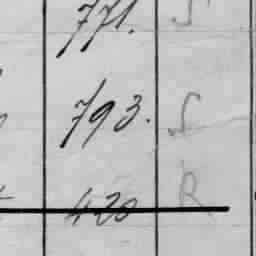 771. S
793. S
420 R